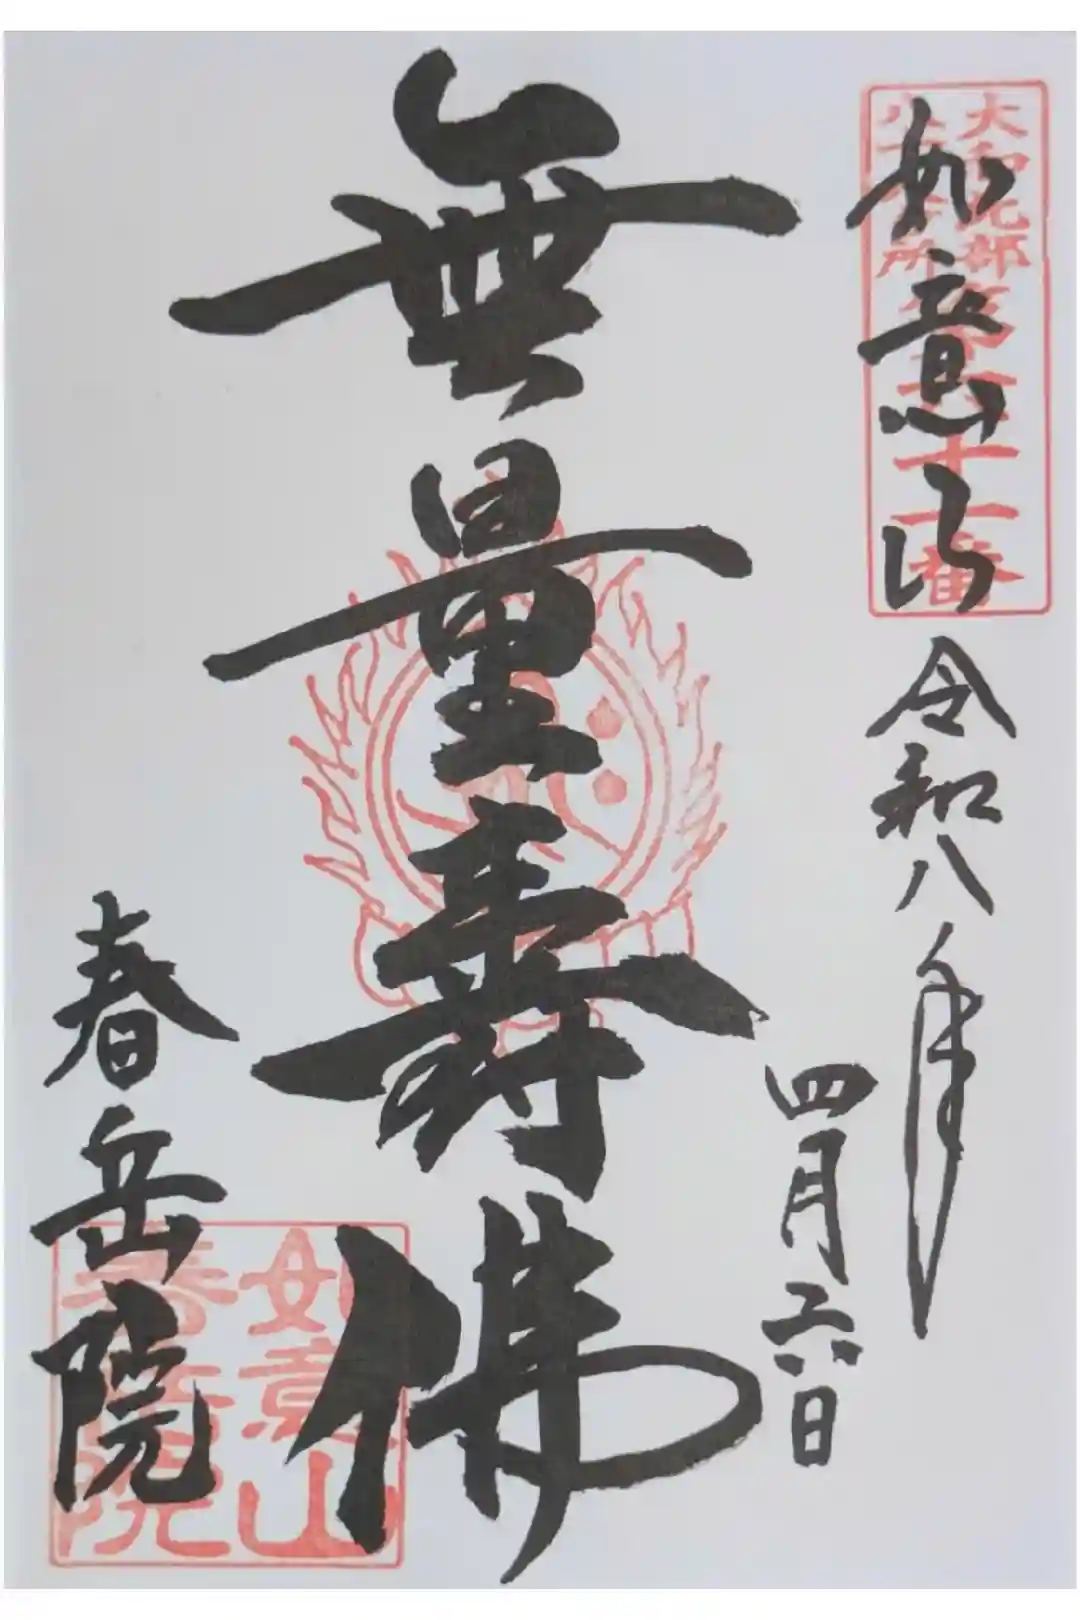 如意山
令和八年
四月六日
無量寿佛
春岳院
大和北部
八十八ヶ所
第六十二番
如意山
春岳院